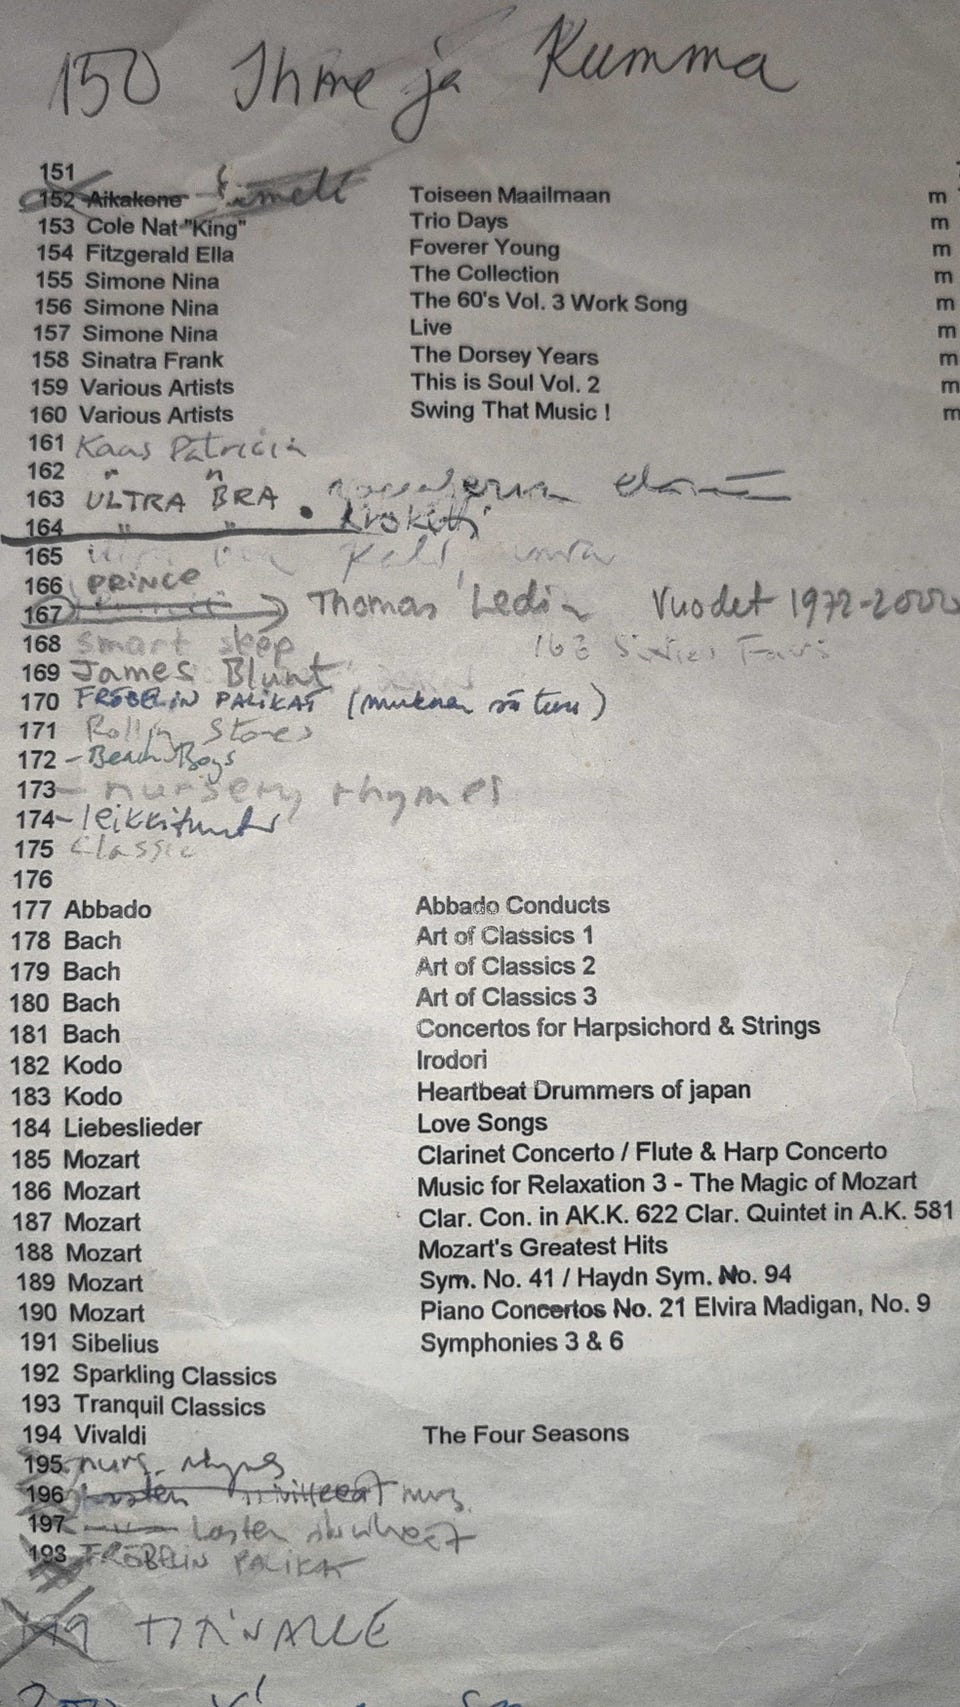 150 Ihme ja Kumma
151
152 Aikakone Toiseen Maailmaan m
153 Cole Nat "King" Trio Days m
154 Fitzgerald Ella Foverer Young m
155 Simone Nina The Collection m
156 Simone Nina The 60's Vol. 3 Work Song m
157 Simone Nina Live m
158 Sinatra Frank The Dorsey Years m
159 Various Artists This is Soul Vol. 2 m
160 Various Artists Swing That Music ! m
161 Kaas Patricia
162 " "
163 ULTRA BRA
164 " " Kroketti
165
166 PRINCE
167 Thomas Ledin Vuodet 1972-2000
168 smart step
169 James Blunt
170 FRÖBELIN PALIKAT
171 Rollin Stones
172 - Beach Boys
173 - nursery rhymes
174 - leikkitunti
175 Classic
176
177 Abbado Abbado Conducts
178 Bach Art of Classics 1
179 Bach Art of Classics 2
180 Bach Art of Classics 3
181 Bach Concertos for Harpsichord & Strings
182 Kodo Irodori
183 Kodo Heartbeat Drummers of japan
184 Liebeslieder Love Songs
185 Mozart Clarinet Concerto / Flute & Harp Concerto
186 Mozart Music for Relaxation 3 - The Magic of Mozart
187 Mozart Clar. Con. in AK.K. 622 Clar. Quintet in A.K. 581
188 Mozart Mozart's Greatest Hits
189 Mozart Sym. No. 41 / Haydn Sym. No. 94
190 Mozart Piano Concertos No. 21 Elvira Madigan, No. 9
191 Sibelius Symphonies 3 & 6
192 Sparkling Classics
193 Tranquil Classics
194 Vivaldi The Four Seasons
195 nurs. rhymes
196
197 Lasten
198 FRÖBELIN PALIKAT
199